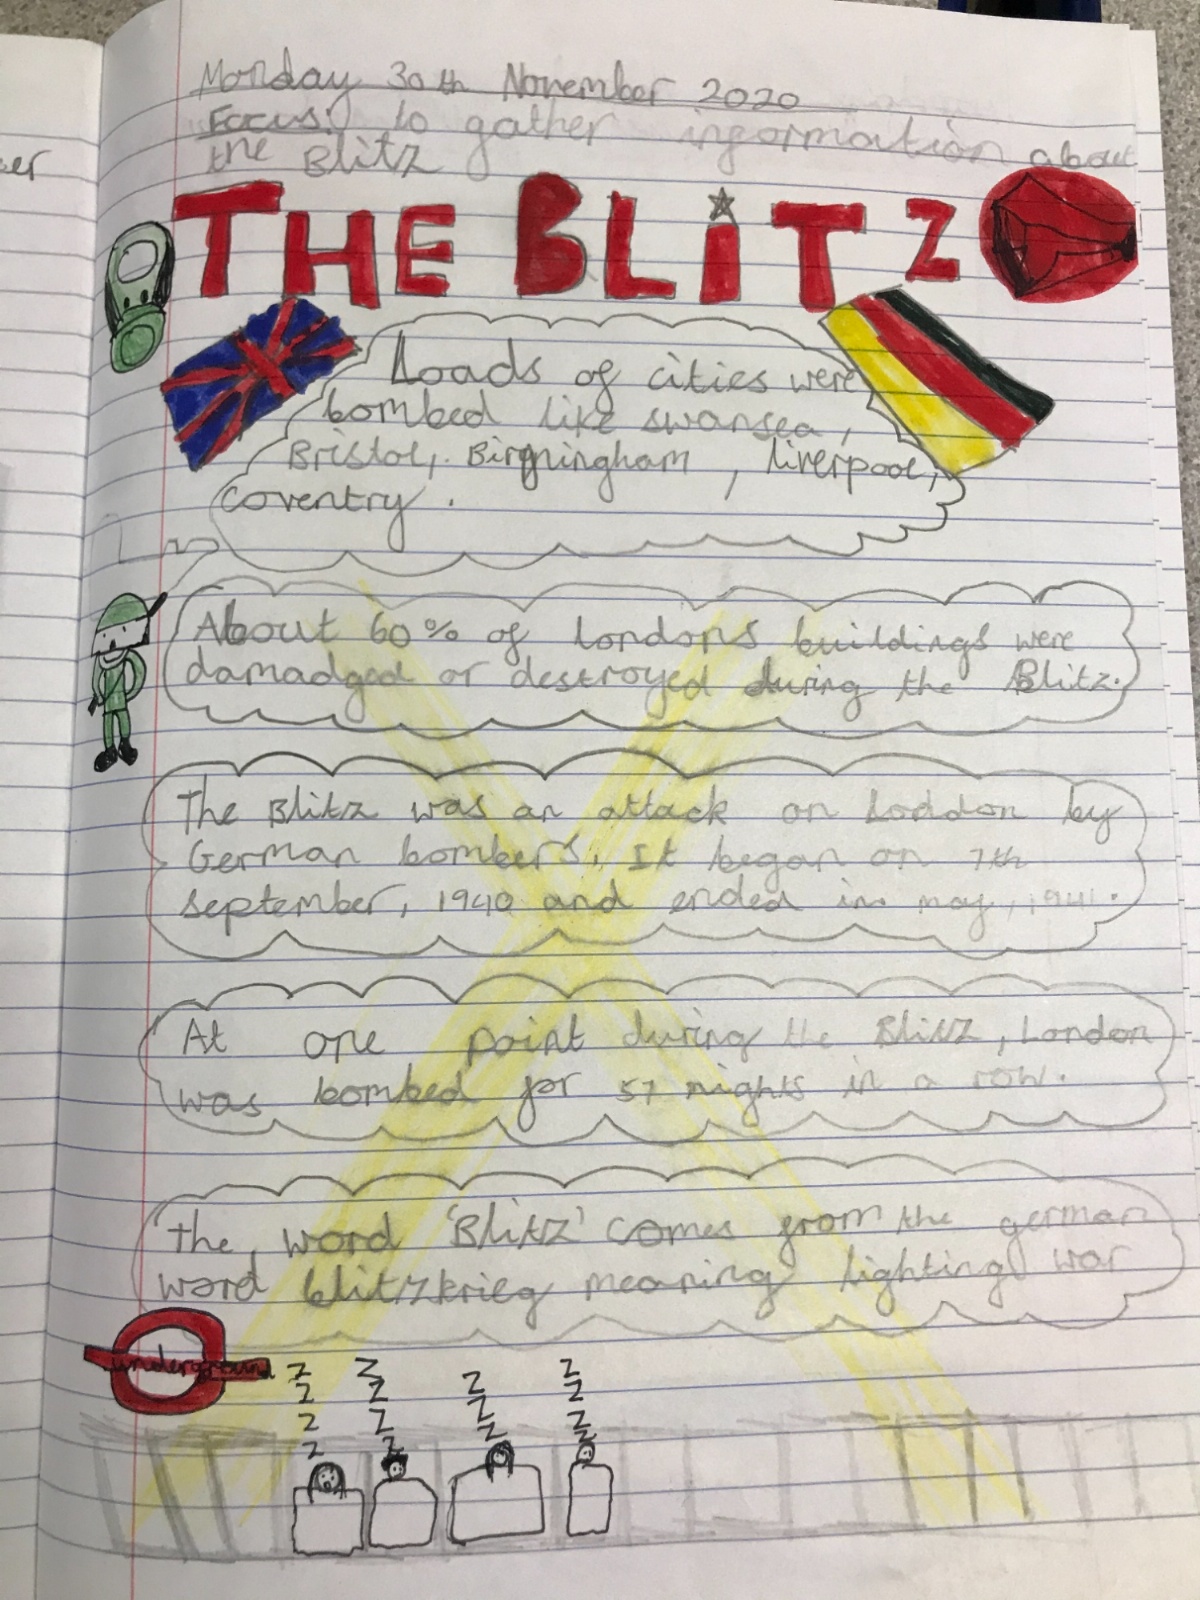 Monday 30th November 2020
Focus: to gather information about
the Blitz
THE BLiTZ
Loads of cities were
bombed like swansea,
Bristol, Birmingham, liverpool,
Coventry.
About 60% of londons buildings were
damadged or destroyed during the Blitz.
The Blitz was an attack on Loddon by
German bombers. It began on 7th
september, 1940 and ended in may, 1941.
At one point during the Blitz, London
was bombed for 57 nights in a row.
The, word 'Blitz' comes from the german
word blitzkrieg meaning lighting war
underground
z z z z
z z z z
z z z z
z z